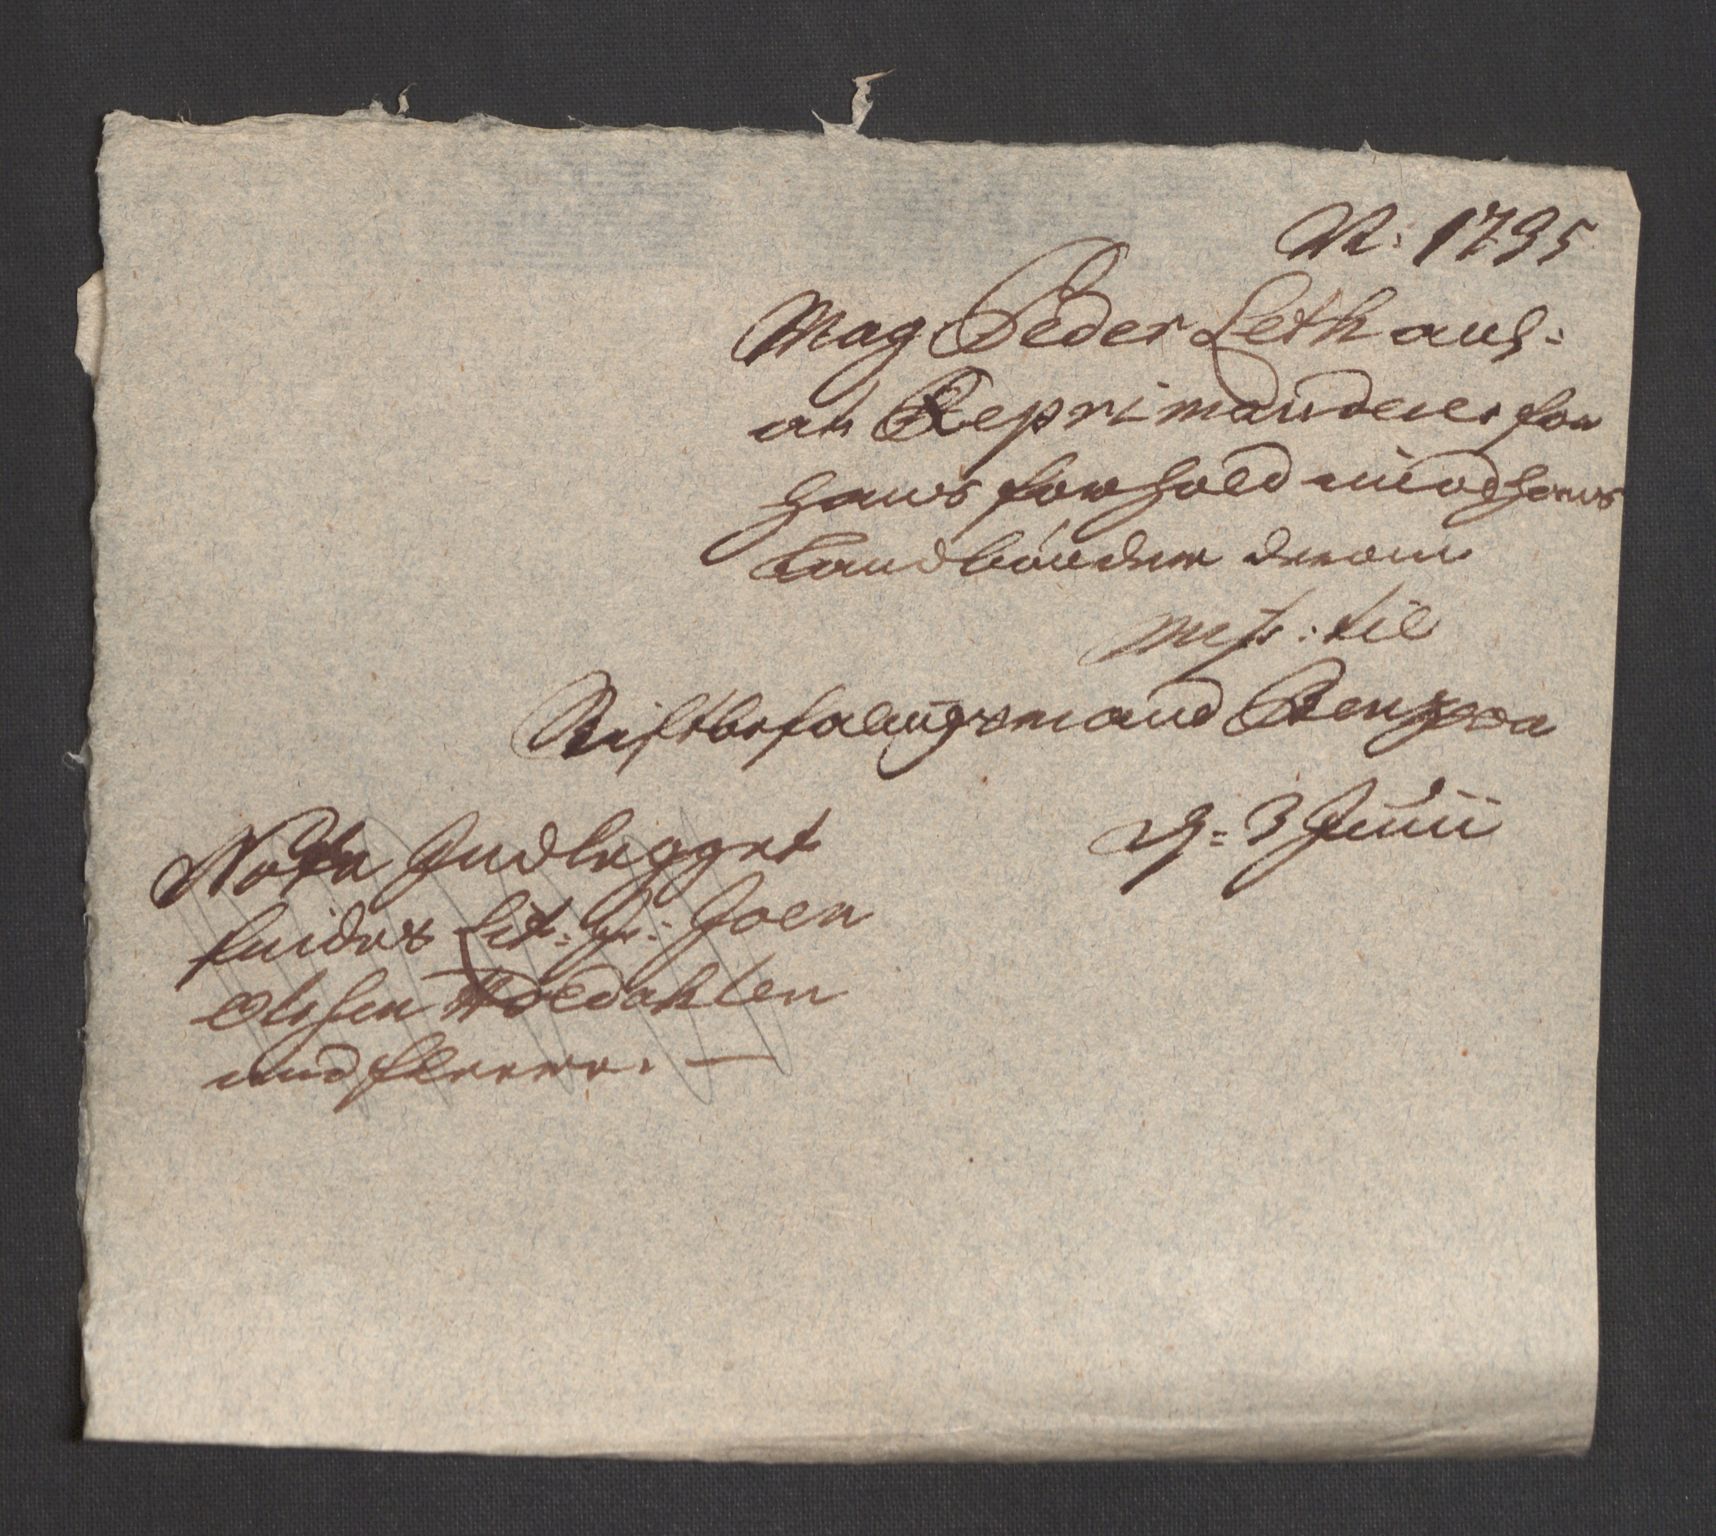 N: 1735
Mag Peder Leth ang:
at Reprimanderes for
hans forhold imod hans
Landbönder derom
Miss: til
Stiftbefalingsmand Benzon
D: 3 Junii
Nota Indlegget
findes Lit: Joen
Olssen Woldahlen
med fleere. —